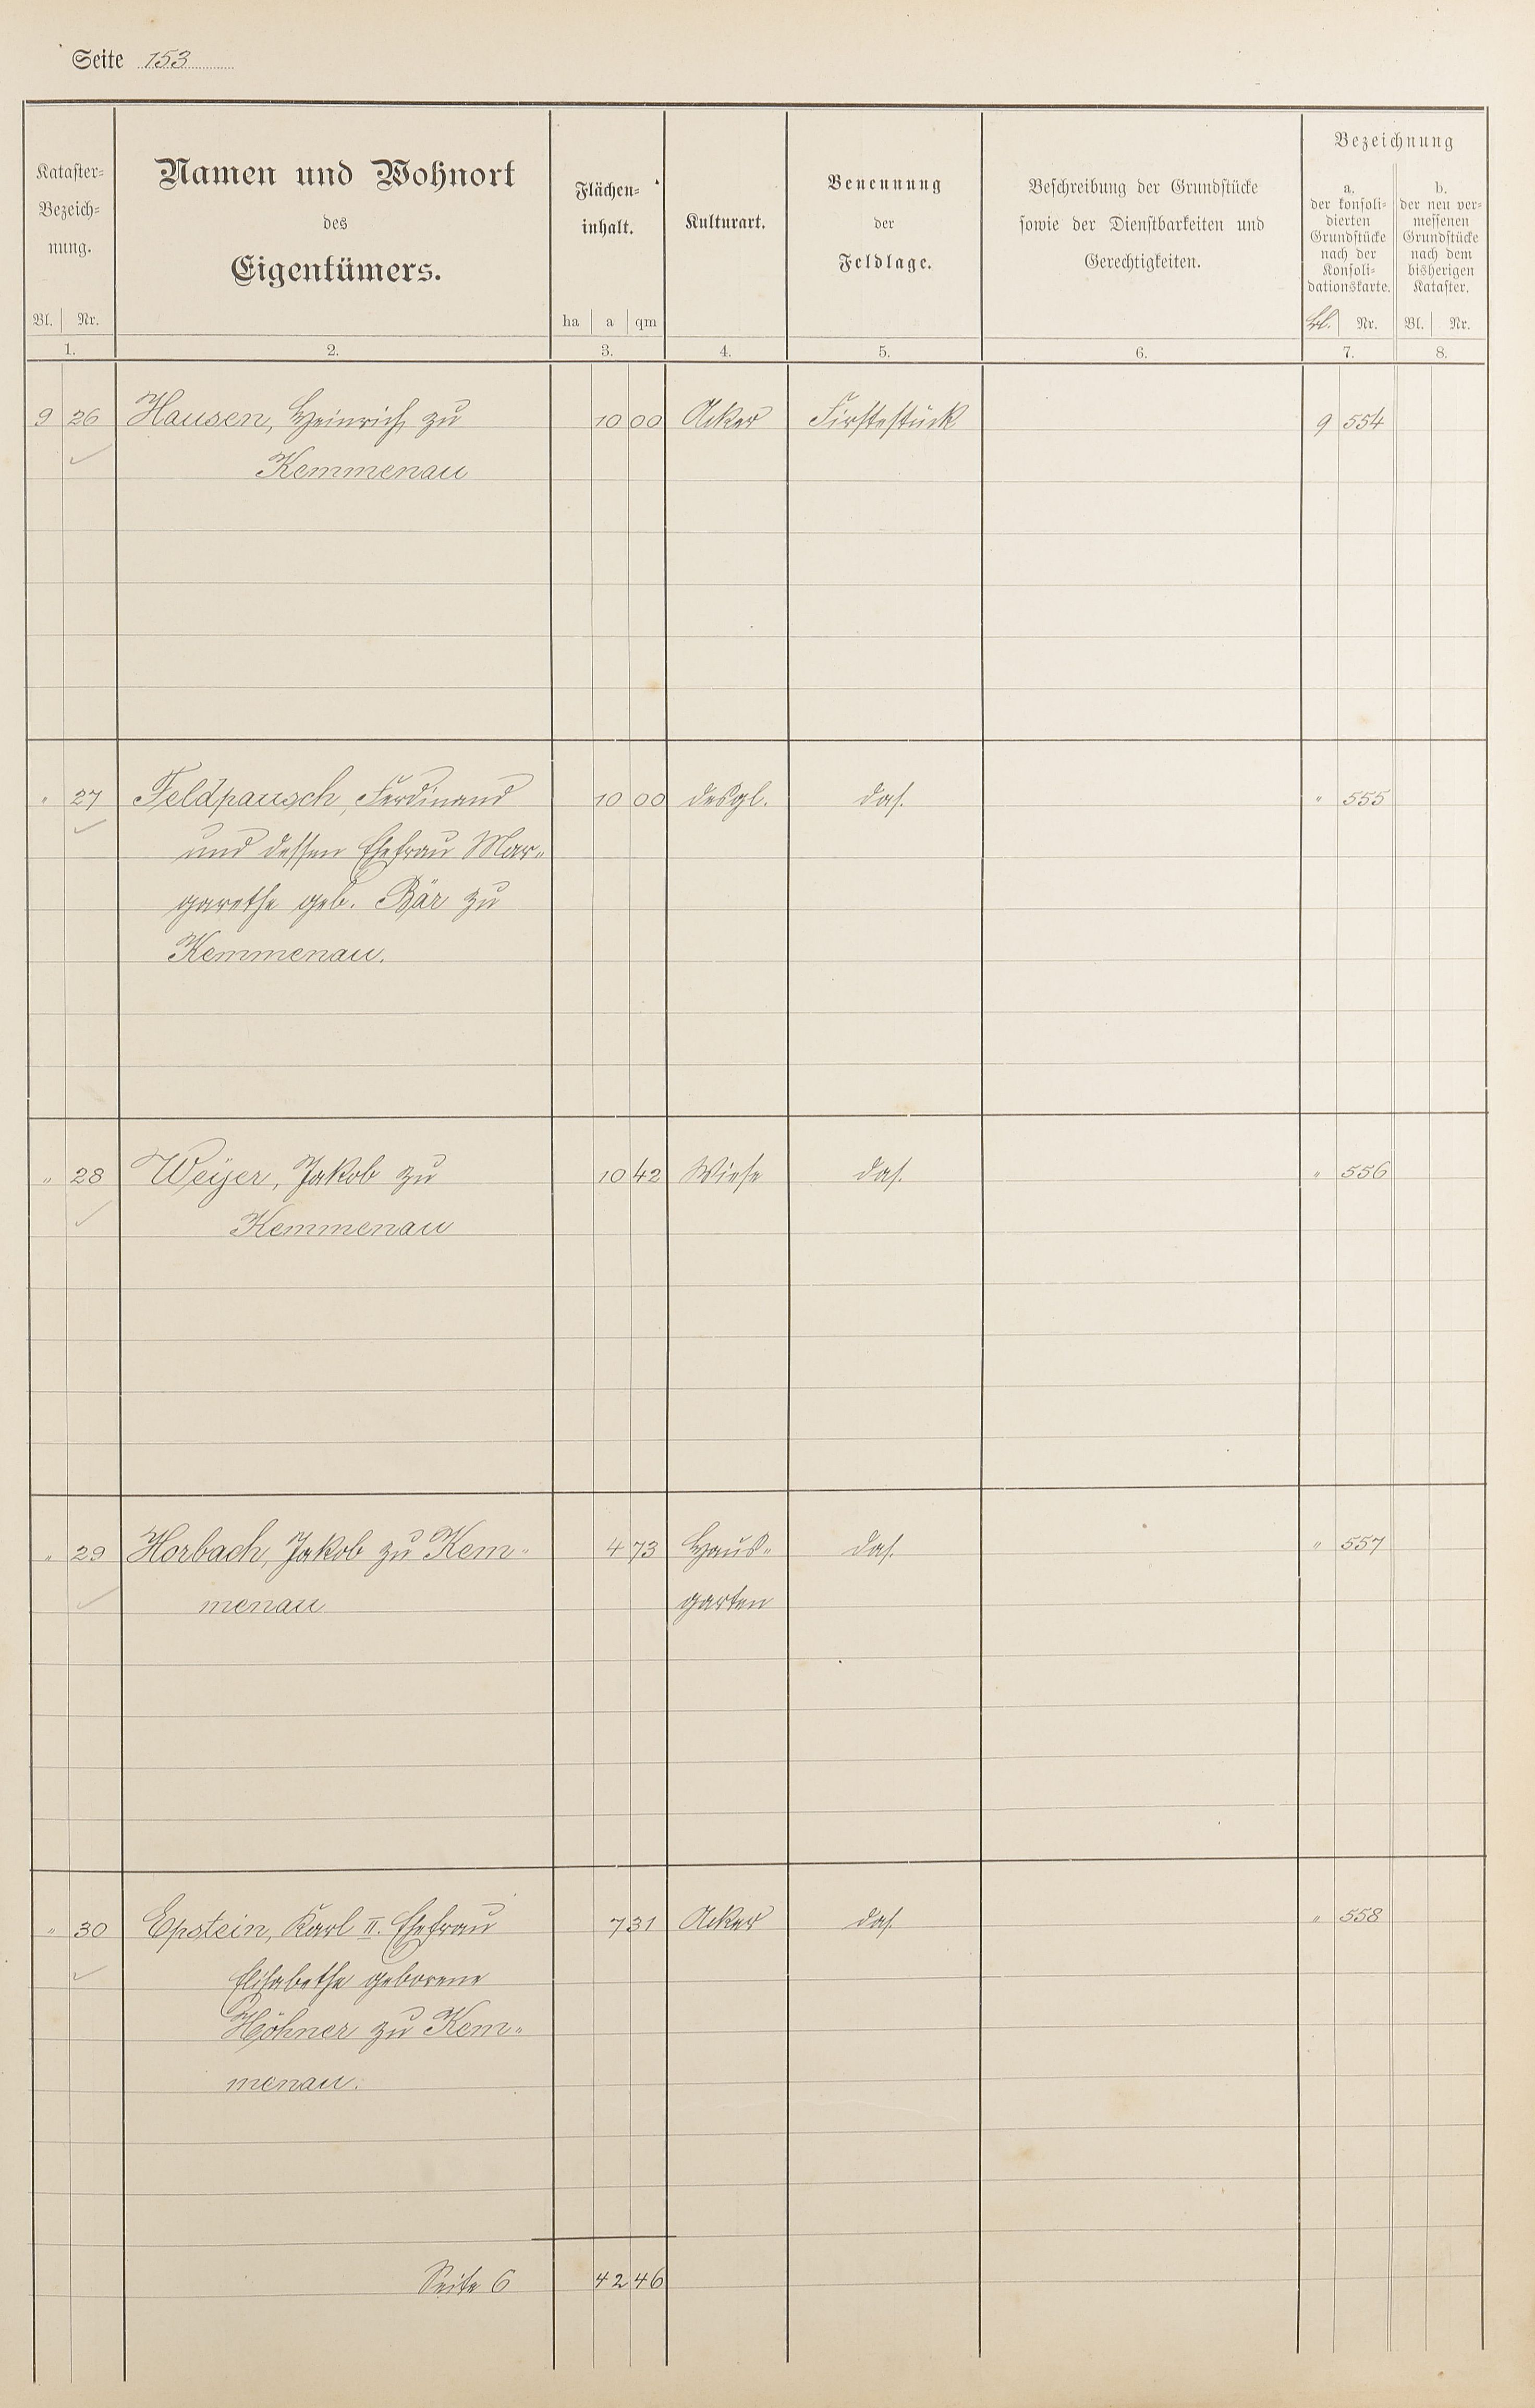 Seite 153
Kataster-
Bezeich-
nung.
Bl. Nr.
1.
Namen und Wohnort
des
Eigentümers.
2.
Flächen-
inhalt.
ha a qm
3.
Kulturart.
4.
Benennung
der
Feldlage.
5.
Beschreibung der Grundstücke
sowie der Dienstbarkeiten und
Gerechtigkeiten.
6.
Bezeichnung
a.
der konsoli-
dierten
Grundstücke
nach der
Konsoli-
dationskarte.
Bl. Nr.
7.
b.
der neu ver-
messenen
Grundstücke
nach dem
bisherigen
Kataster.
Bl. Nr.
8.
9 26 Hausen, Heinrich, zu 10 00 Acker Firstestück 9 554
Kemmenau
" 27 Feldpausch, Ferdinand 10 00 desgl. das. " 555
und dessen Ehefrau Mar-
garethe geb. Bär zu
Kemmenau.
" 28 Weyer, Jakob zu 10 42 Wiese das. " 556
Kemmenau
" 29 Horbach, Jakob zu Kem- 4 73 Haus- das. " 557
menau garten
" 30 Epstein, Karl II. Ehefrau 7 31 Acker das. " 558
Elisabethe geborene
Höhner zu Kem-
menau.
Seite 6 42 46